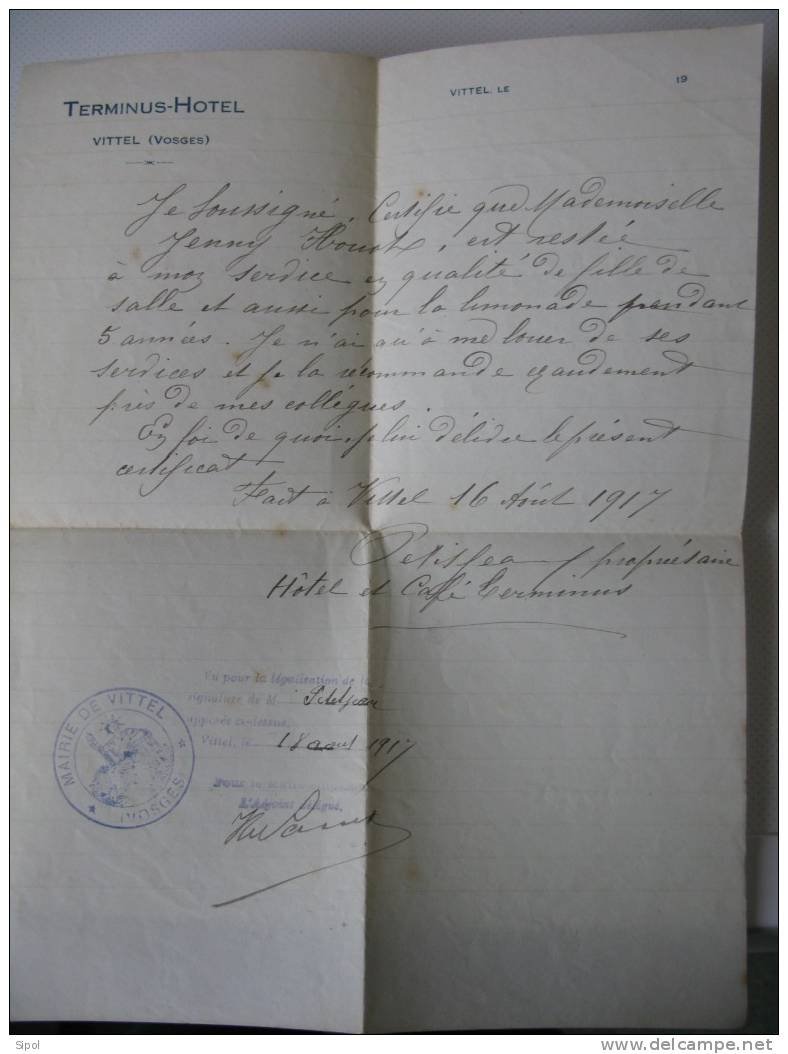 TERMINUS-HOTEL
VITTEL (VOSGES)
VITTEL, LE 19
Je soussigné, Certifie que Mademoiselle
Jenny Houot, est restée
à mon service en qualité de fille de
salle et aussi pour la limonade pendant
5 années. Je n'ai qu'à me louer de ses
services et je la recommande chaudement
près de mes collègues.
En foi de quoi je lui délivre le présent
certificat
Fait à Vittel 16 Août 1917
Petitjean propriétaire
Hôtel et Café Terminus
Vu pour la légalisation de la
signature de M Petitjean
apposée ci-dessus.
Vittel, le 18 aout 1917
L'Adjoint délégué,
MAIRIE DE VITTEL
(VOSGES)
Sipol
www.delcampe.net